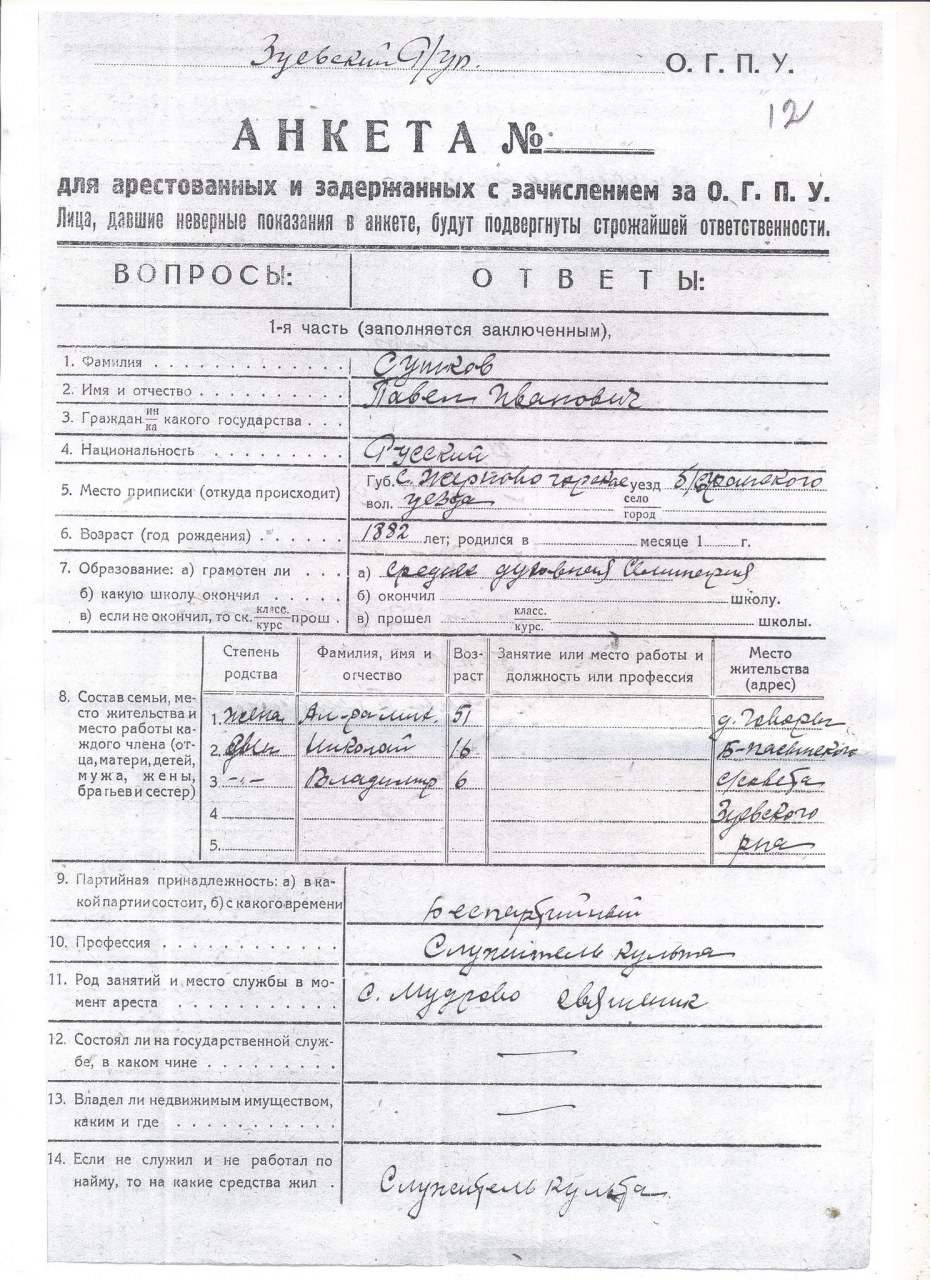 Зуевский О. Г. П. У.
12
АНКЕТА №
для арестованных и задержанных с зачислением за О. Г. П. У.
Лица, давшие неверные показания в анкете, будут подвергнуты строжайшей ответственности.
ВОПРОСЫ: ОТВЕТЫ:
1-я часть (заполняется заключенным),
1. Фамилия Сушков
2. Имя и отчество Павел Иванович
3. Граждан ин/ка какого государства
4. Национальность Русский
5. Место приписки (откуда происходит) Губ. с. уезд
вол. уезда село
город
6. Возраст (год рождения) 1882 лет; родился в месяце 1 г.
7. Образование: а) грамотен ли а) среднее духовная Семинария
б) какую школу окончил б) окончил школу.
в) если не окончил, то ск. класс./курс прош. в) прошел класс./курс. школы.
8. Состав семьи, место жительства и место работы каждого члена (отца, матери, детей, мужа, жены, братьев и сестер)
Степень родства Фамилия, имя и отчество Возраст Занятие или место работы и должность или профессия Место жительства (адрес)
1. жена 51 д. Говоры
2. сын Николай 16
3 -"- Владимир 6 с/совета
4 Зуевского
5. р-на
9. Партийная принадлежность: а) в какой партии состоит, б) с какого времени Беспартийный
10. Профессия Служитель культа
11. Род занятий и место службы в момент ареста с. Мудрово священик
12. Состоял ли на государственной службе, в каком чине —
13. Владел ли недвижимым имуществом, каким и где —
14. Если не служил и не работал по найму, то на какие средства жил Служитель культа.